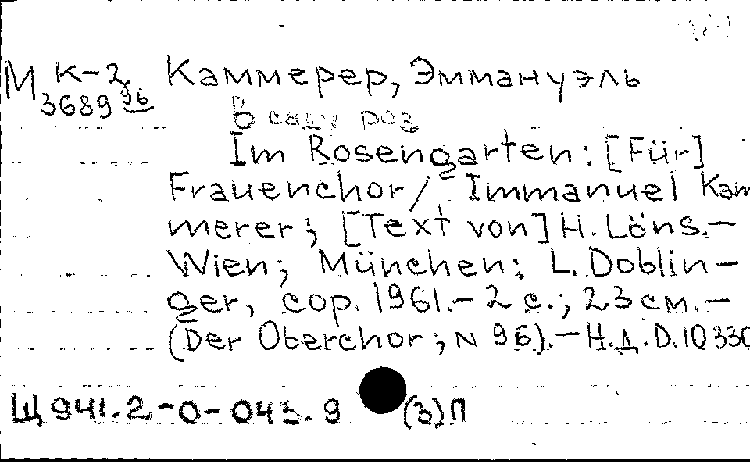 М К-2 Каммерер, Эммануэль
3689 96
В саду роз
Im Rosengarten: [Für]
Frauenchor / Immanuel Kam
merer; [Text von] H. Löns.-
Wien; München: L. Doblin-
ger, cop. 1961.- 2 с.; 23 см.-
(Der Oberchor; N 96).- Н.д. D.10330
Щ 941.2-0-043.9 (3)П